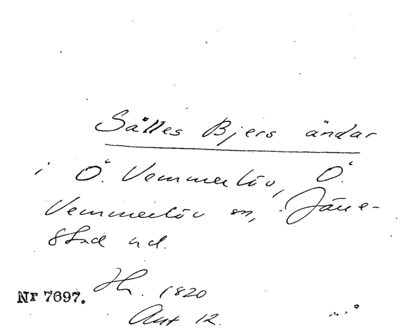 Sälles Bjers ändar
i Ö. Vemmerlöv, Ö.
Vemmerlöv sn, Järre-
stad hd.
Hr. 1820
Nr 7697.
Ant 12.